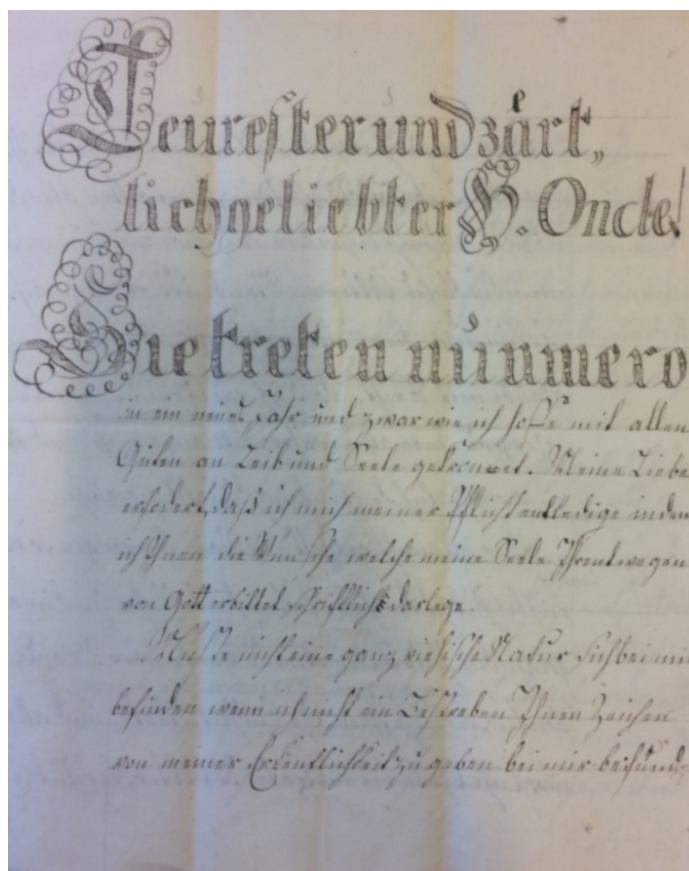 Teurester und zärt,,
lich geliebter H. Oncle!
Sie treten nunmero
in ein neues Jahr und zwar wie ich hoffe mit allem
Guten an Leib und Seele gekrönet. Meine Liebe
erfodert, daß ich mich meiner Pflicht entledige indem
ich Ihnen die Wünsche welche meine Seele Ihrentwegen
von Gott erbittet schriftlich darlege.
Müßte nicht eine ganz viehische Natur sich bei mir
befinden wenn ich nicht ein Bestreben Ihnen Zeichen
von meiner Erkentlichkeit zu geben bei mir befünd